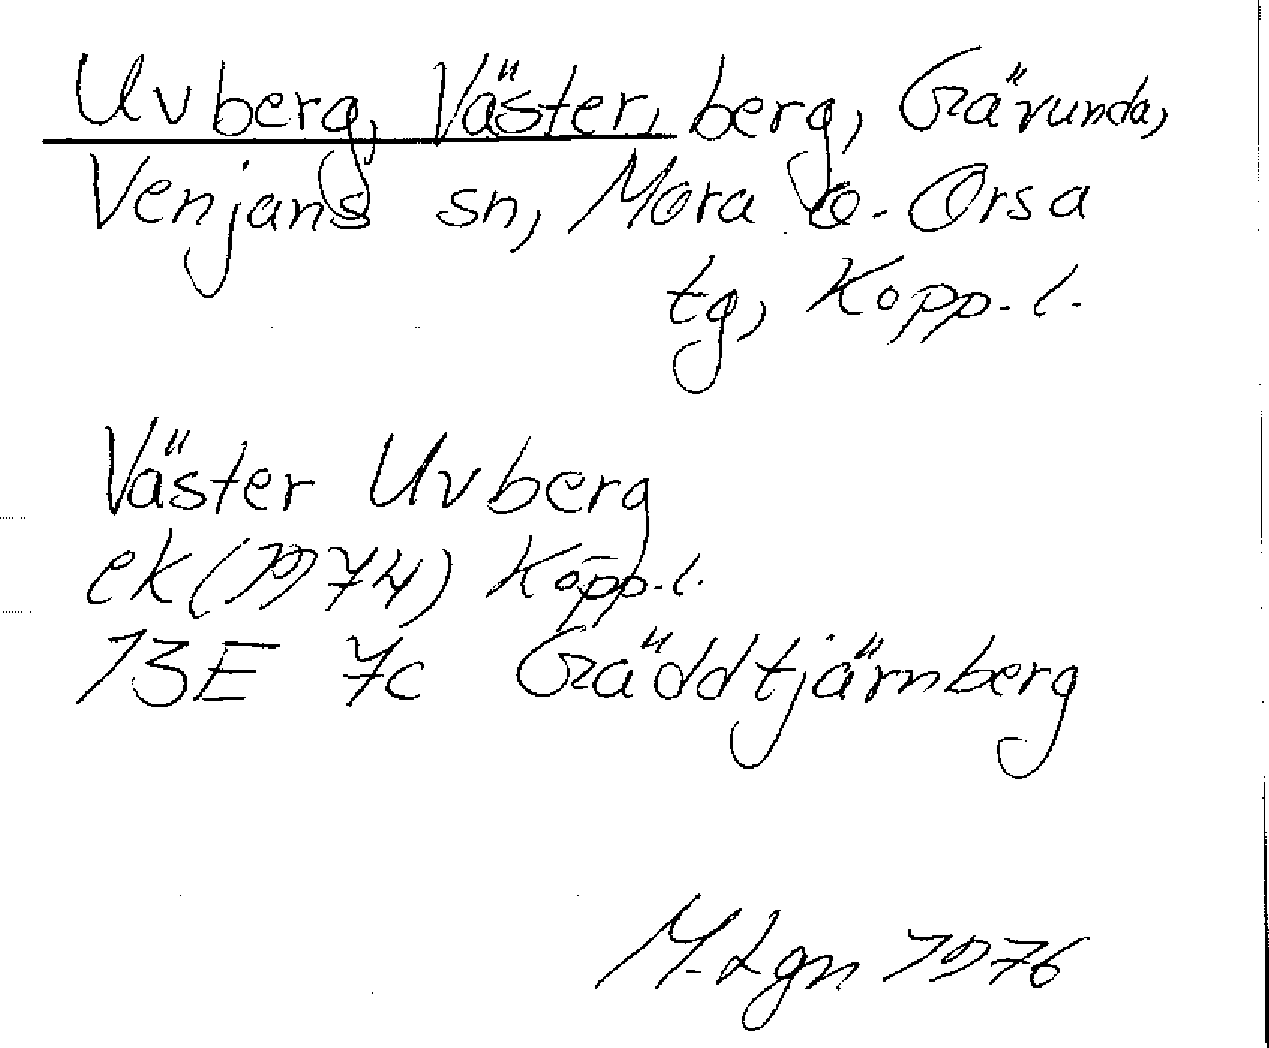 Uvberg, Väster, berg, Gävunda,
Venjans sn, Mora o. Orsa
tg, Kopp. l.
Väster Uvberg
ek (1974) Kopp. l.
13E 7c Gäddtjärnberg
M. Lgn 1976